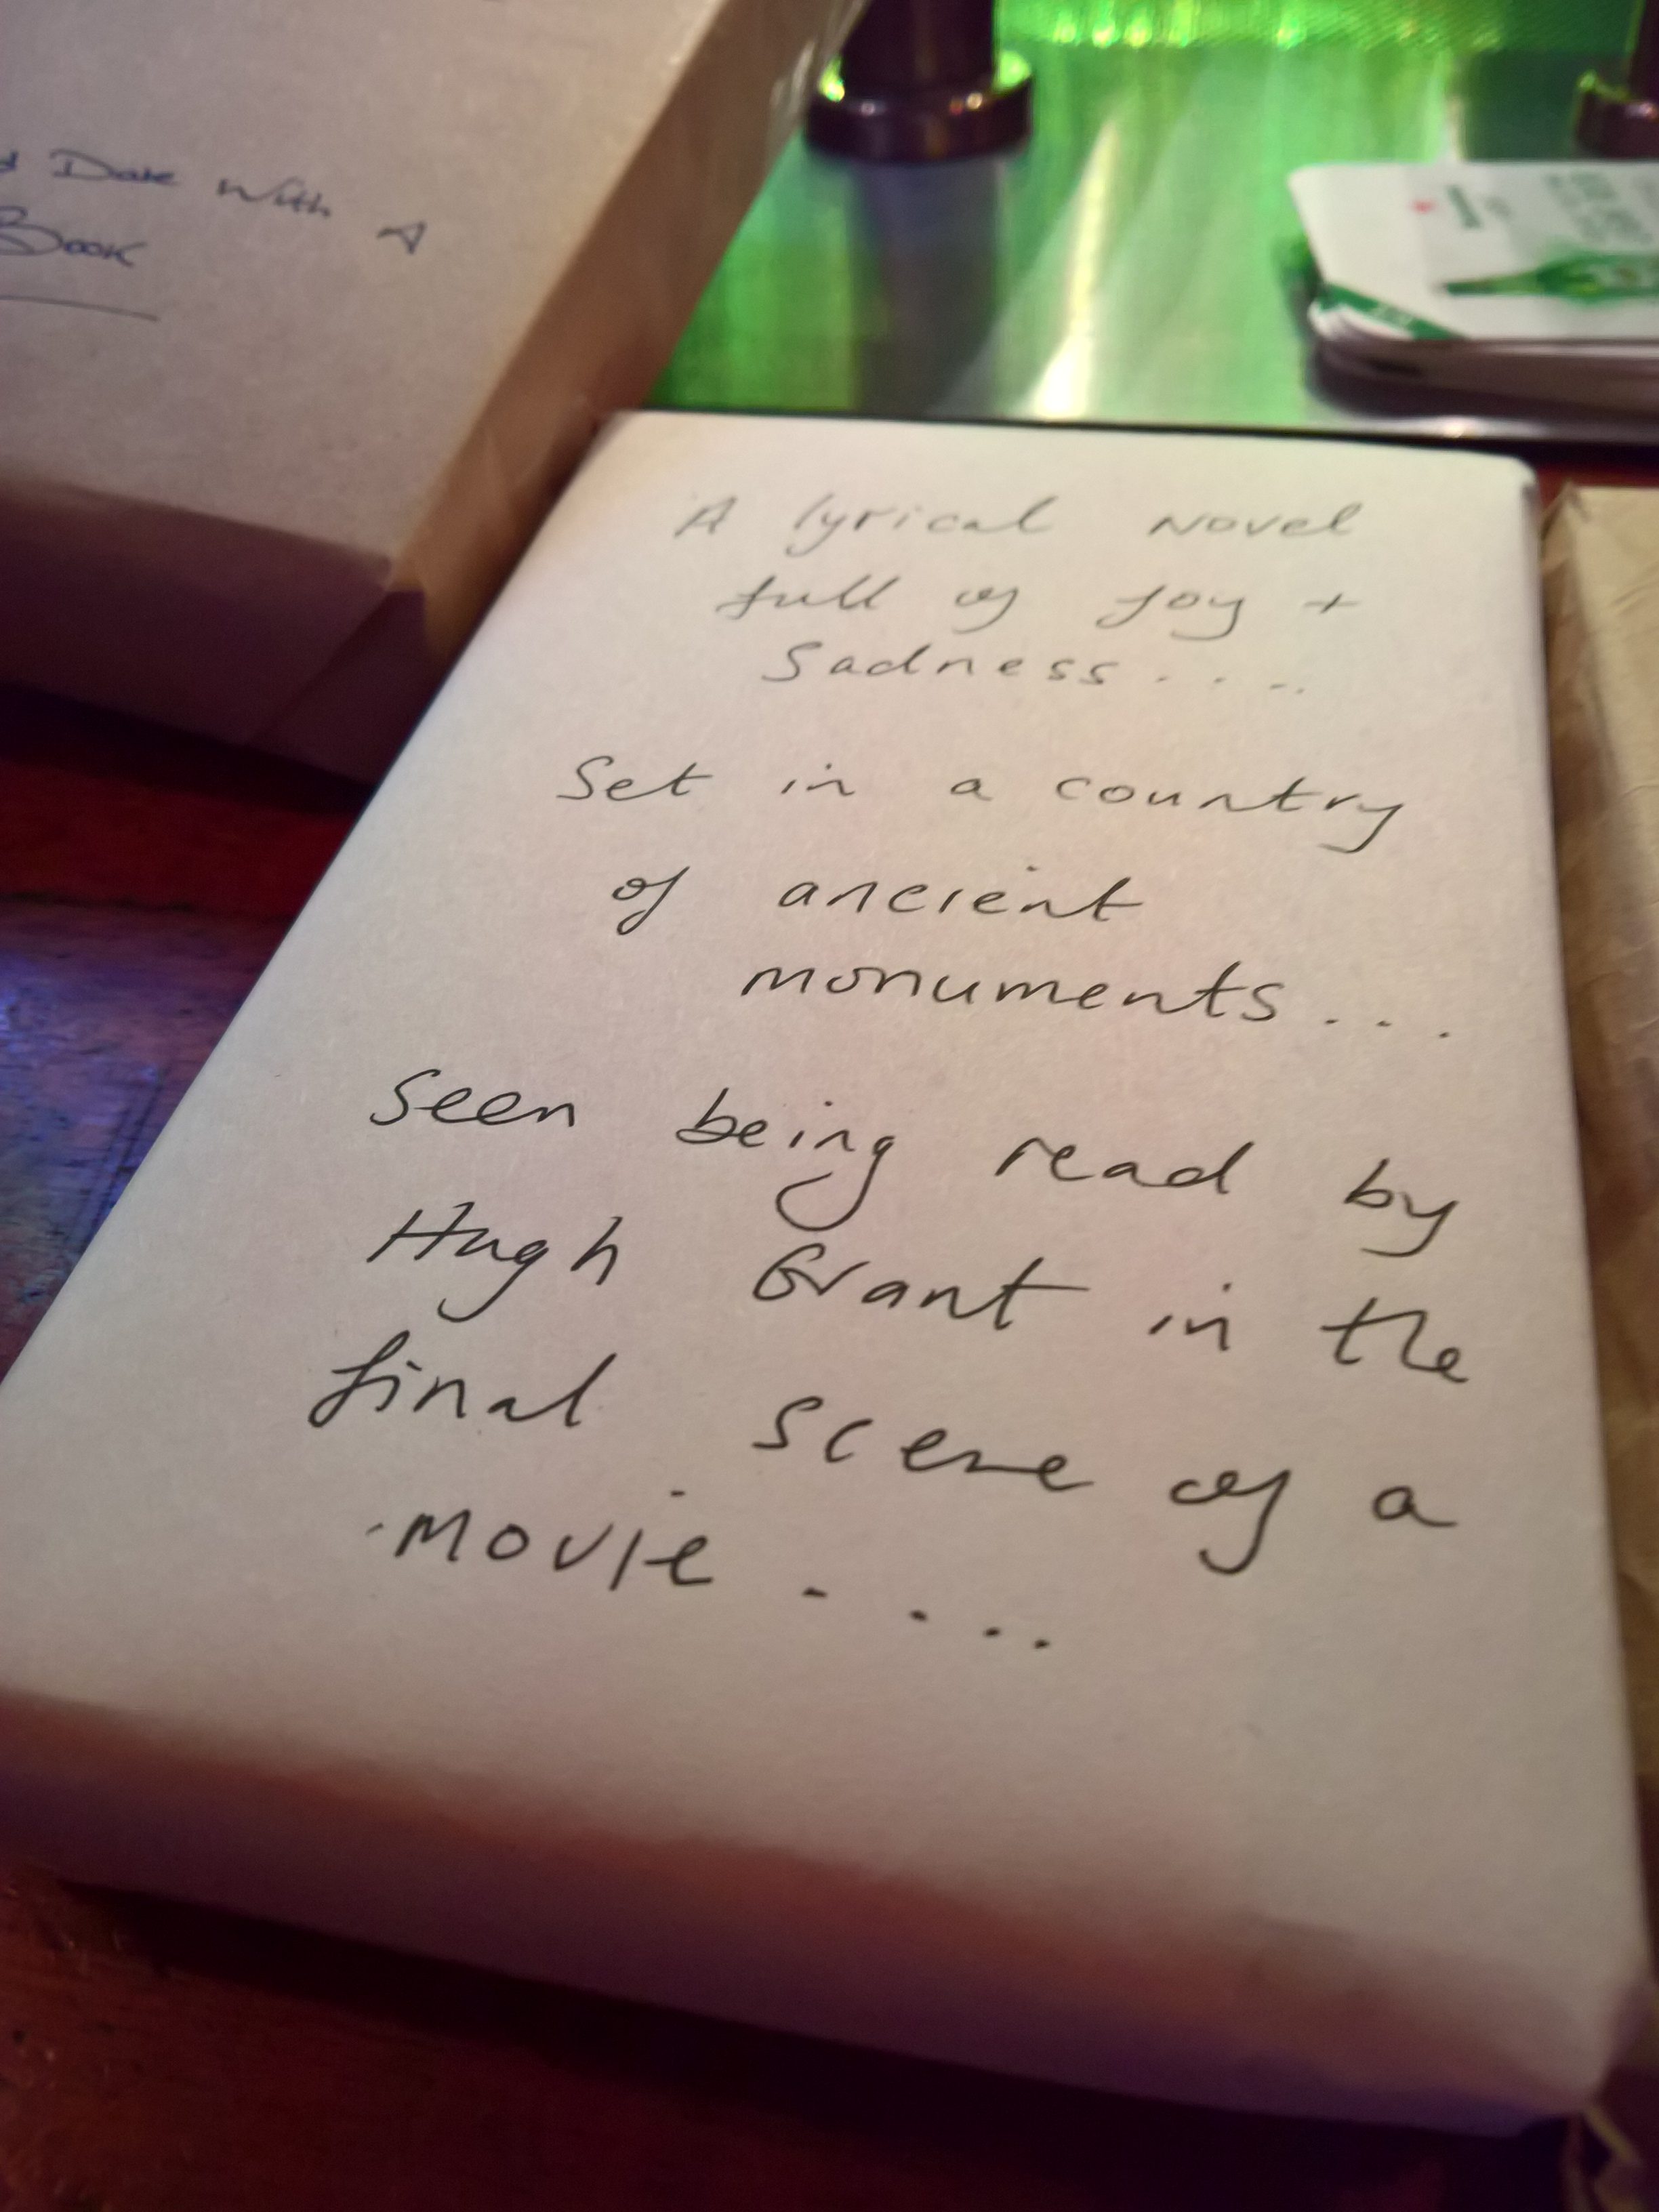 Date With A
Book
A lyrical Novel
full of joy +
Sadness....
Set in a country
of ancient
monuments...
Seen being read by
Hugh Grant in the
final scene of a
Movie....